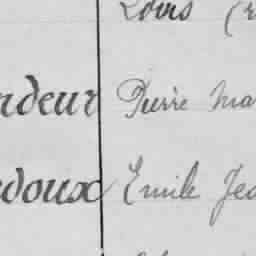 Louis (
rdeur Pierre Ma
doux Emile Jea